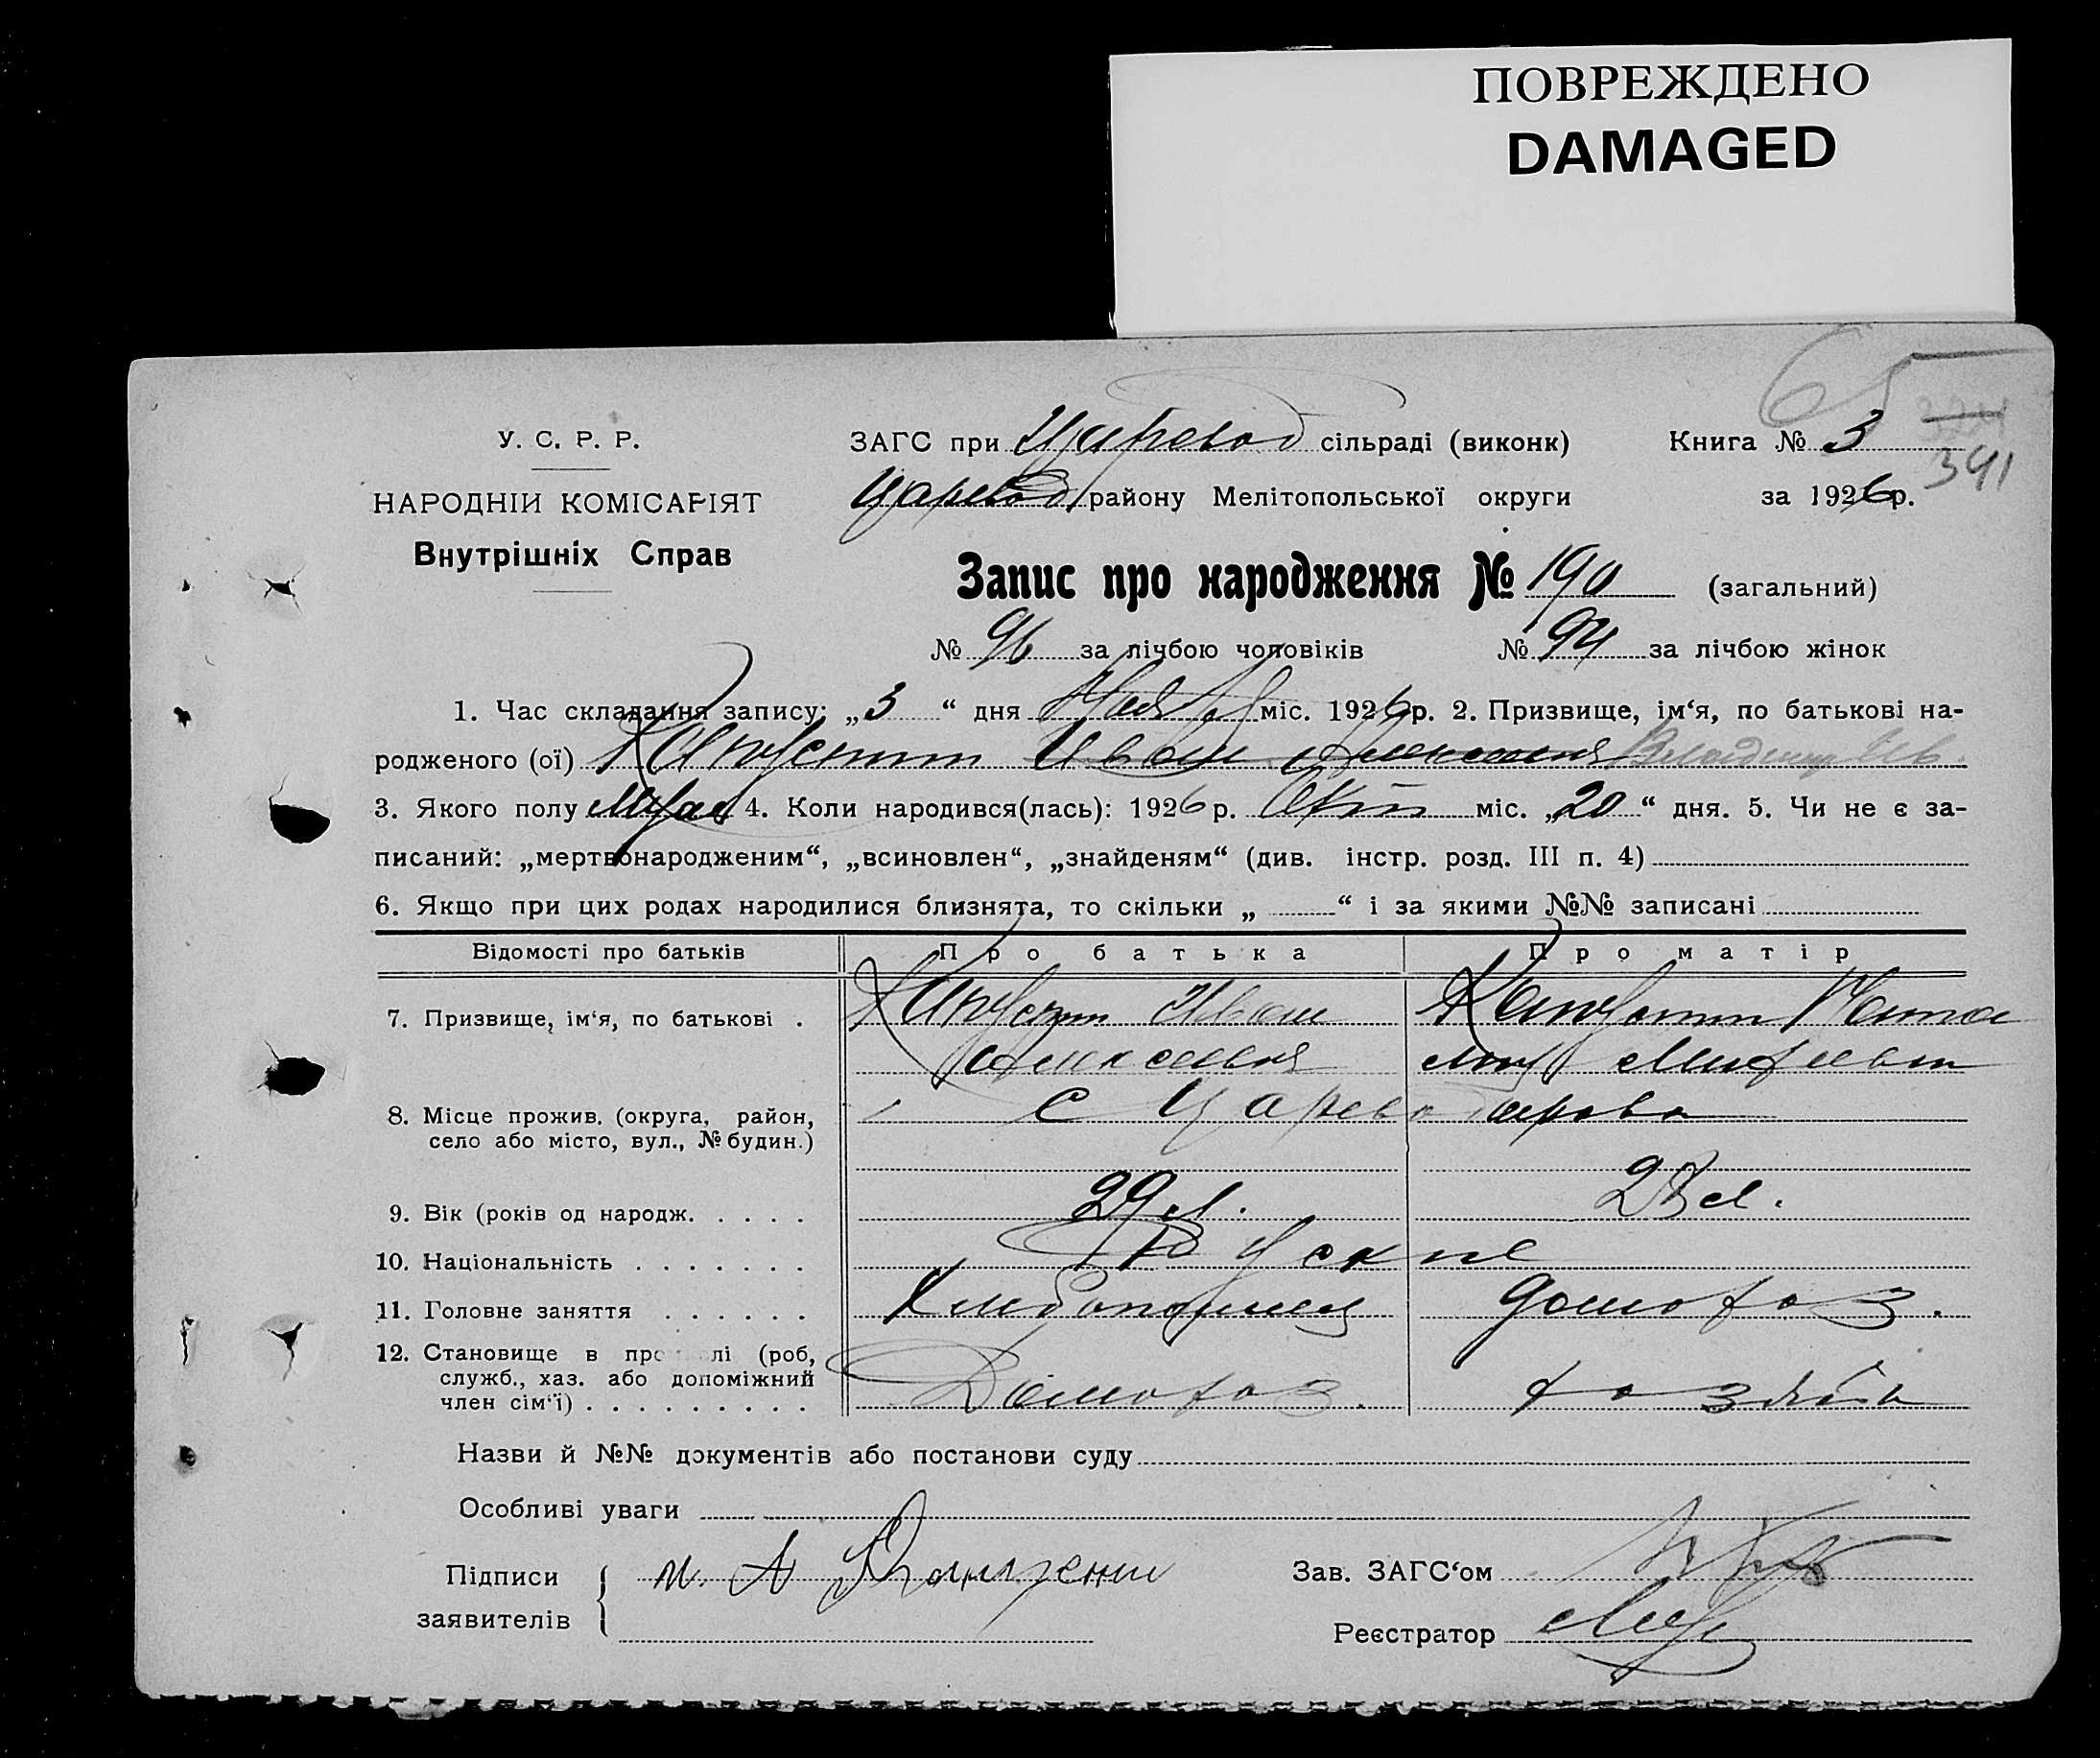 ПОВРЕЖДЕНО
DAMAGED
65
324
341
У. С. Р. Р.
НАРОДНІЙ КОМІСАРІЯТ
Внутрішніх Справ
ЗАГС при Царевод сільраді (виконк) Книга № 3
Царевод району Мелітопольської округи за 1926 р.
Запис про народження № 190 (загальний)
№ 96 за лічбою чоловіків № 94 за лічбою жінок
1. Час складання запису: „3“ дня Нояб міс. 1926 р. 2. Призвище, ім‘я, по батькові на-
родженого (ої) Капустин Иван Владимир Ив
3. Якого полу Муж 4. Коли народився(лась): 1926 р. Окт міс. „20“ дня. 5. Чи не є за-
писаний: „мертвонародженим“, „всиновлен“, „знайденям“ (див. інстр. розд. III п. 4)
6. Якщо при цих родах народилися близнята, то скільки „ “ і за якими №№ записані
Відомості про батьків Про батька Про матір
7. Призвище, ім‘я, по батькові . Капустин Иван Капустин
Алексеевич
8. Місце прожив. (округа, район,
село або місто, вул., № будин.)
с Цареводарова
9. Вік (років од народж. . . . . 29 л. 28 л.
10. Національність . . . . . . . Руские
11. Головне заняття . . . . . . Хлебопашец домохоз.
12. Становище в про лі (роб,
служб., хаз. або допоміжний
член сім‘ї) . . . . . . . . . Домохоз. хозяйк
Назви й №№ документів або постанови суду
Особливі уваги
Підписи
заявителів
Зав. ЗАГС‘ом
Реєстратор